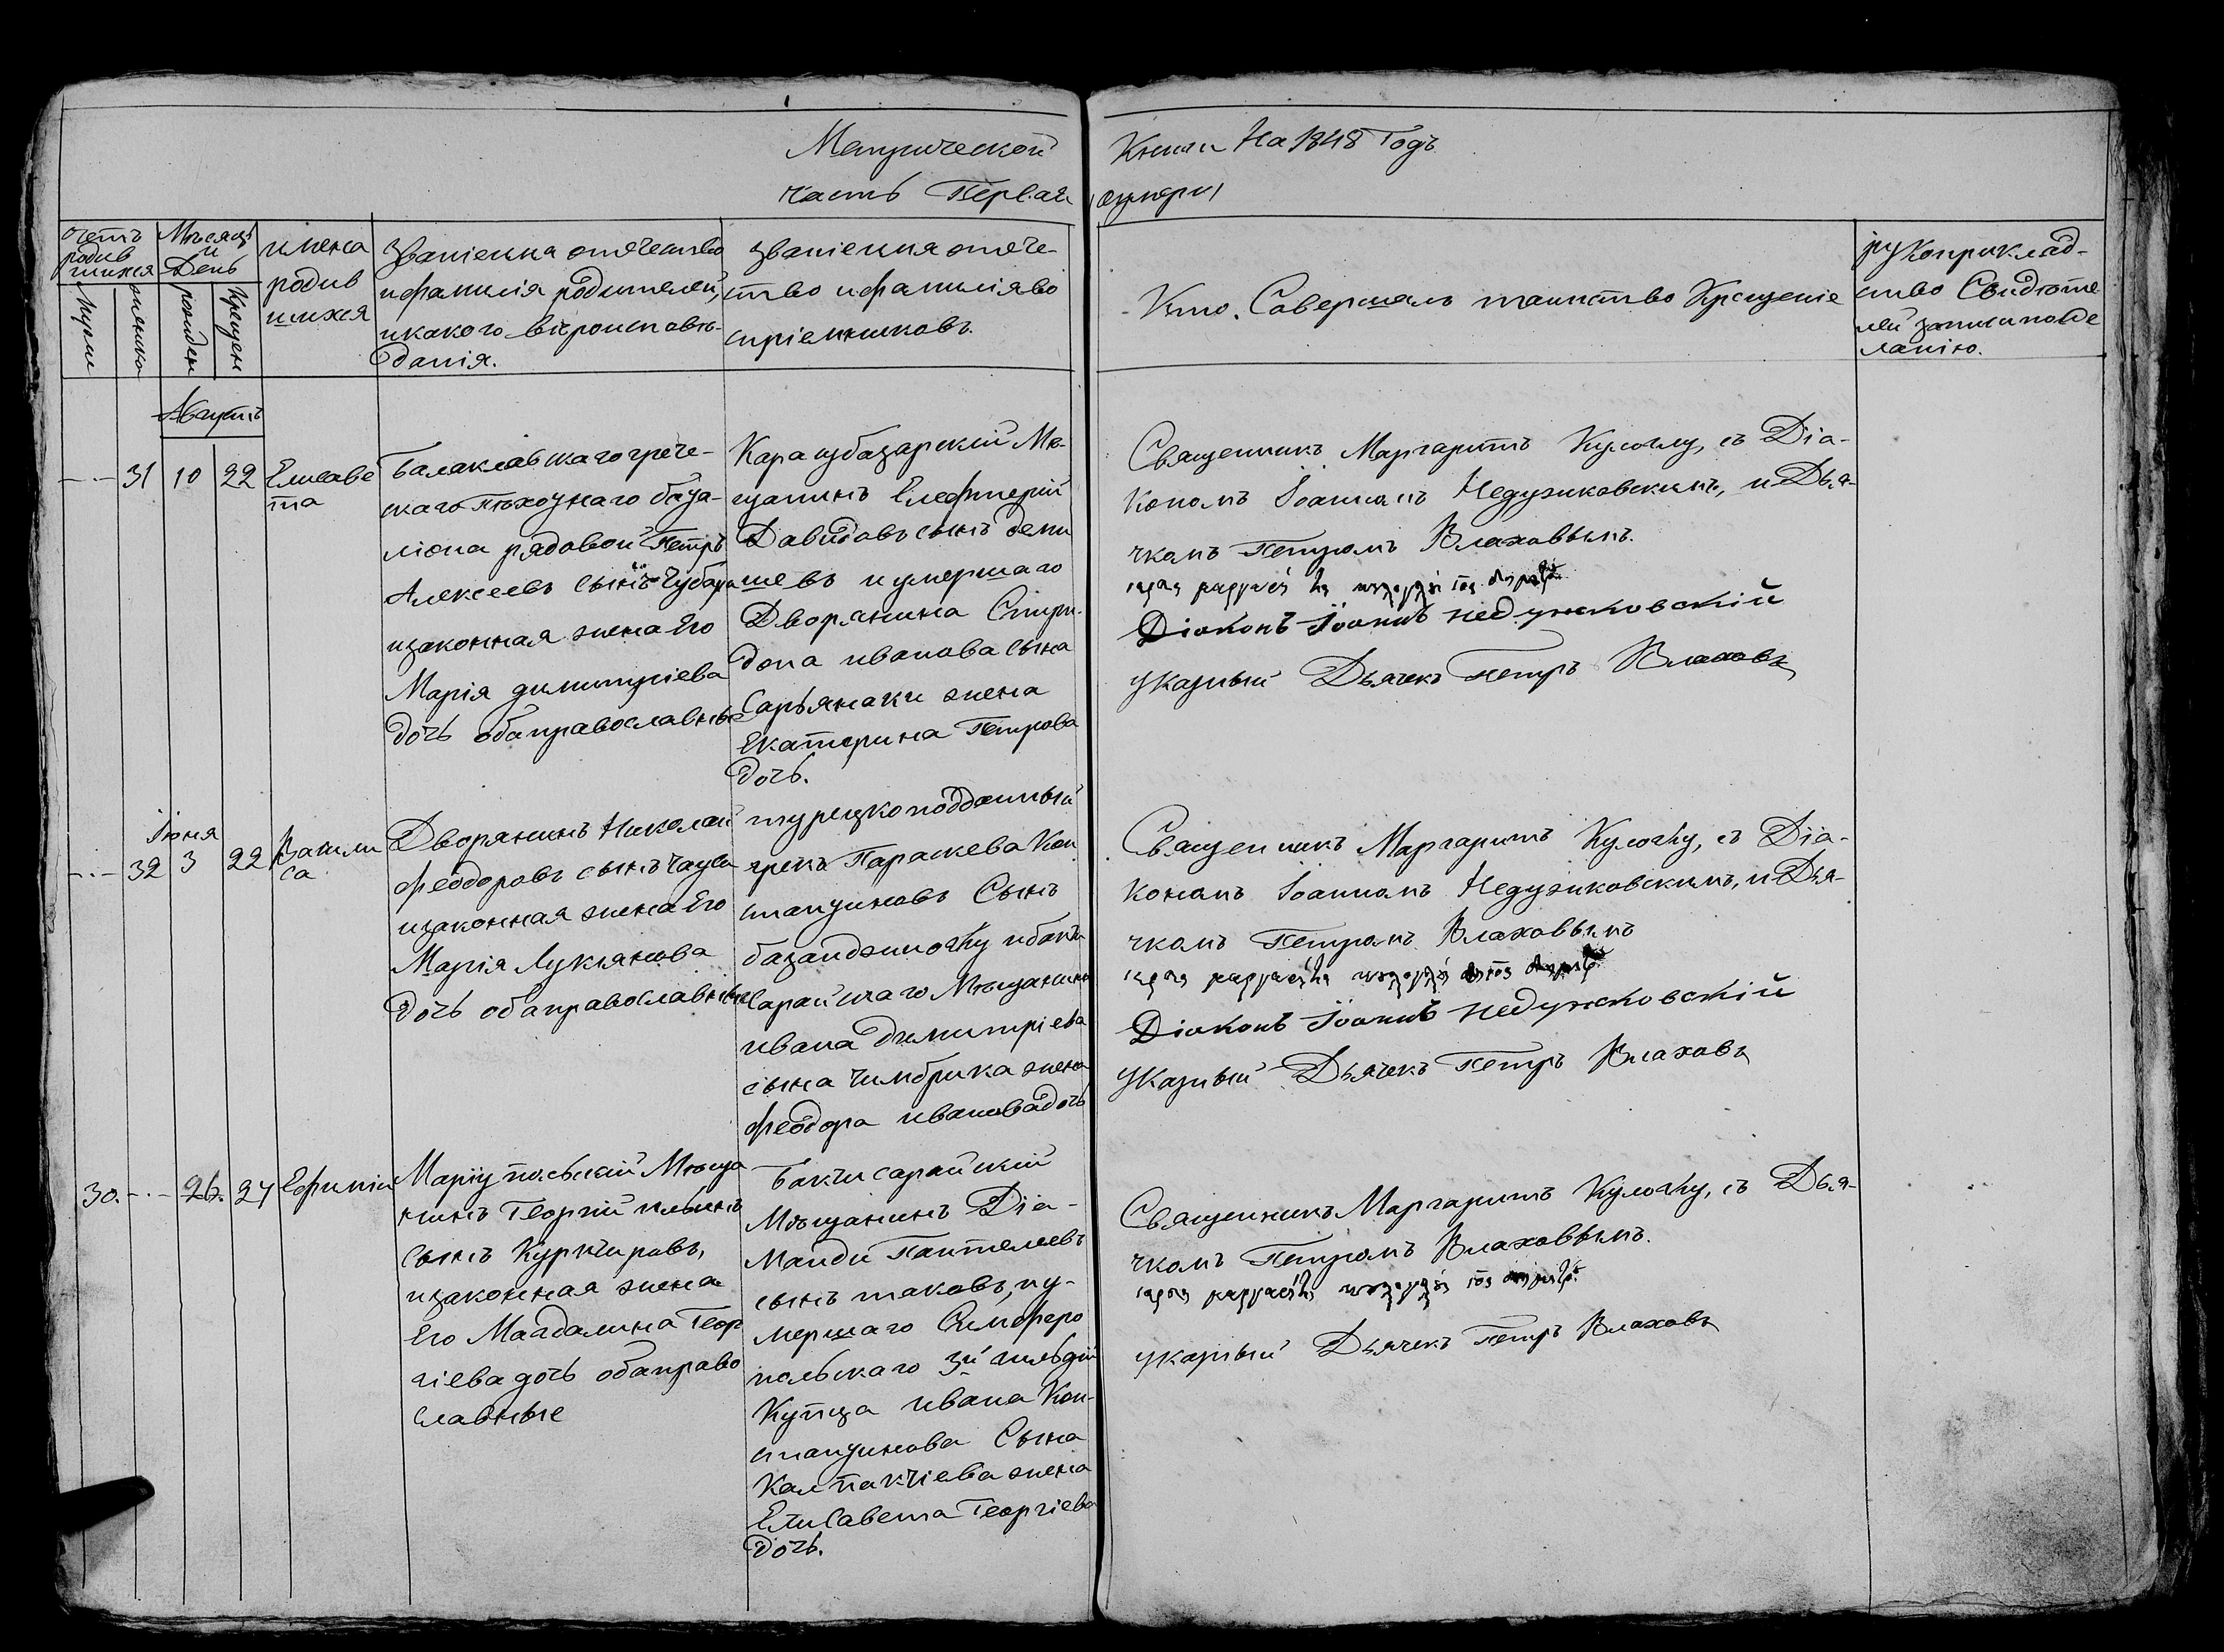 Метрической Книги На 1848 Годъ
часть Первая
Счетъ родив шихся
Мѣсяцъ и День
имена родив шихся
Званіе имя отечество
и фамилія родителей,
и какого вѣроисповѣ-
данія.
званіе имя отече-
ство и фамилія во
спріемниковъ.
Кто Совершалъ таинство Крещеніе
рукоприклад-
ство Свидѣте
лей записи по же
ланію.
Августъ
31 10 22 Елисаве
та
Балаклавскаго грече-
скаго Пѣхотнаго бата-
ліона рядовой Петръ
Алексеевъ сынъ
и законная жена Его
Марія димитріева
дочь оба православные
Карасубазарскій Мѣ-
щанинъ Елефтерій
Давидовъ сынъ деми
шевъ и умершаго
Дворянина Спири-
дона иванова сына
Сарьянаки жена
Екатерина Петрова
дочь.
Священникъ Маргаритъ Кулоглу, съ Діа-
кономъ Іоанномъ Недужковскимъ, и Дья-
чкомъ Петромъ Влаховымъ.
Діаконъ Іоаннъ недужковскій
указный Дьячекъ Петръ Влаховъ
Іюня
32 3 22 Васили
са
Дворянинъ Николай
феодоровъ сынъ
и законная жена Его
Марія Лукіянова
дочь оба православные
турецкоподданный
грекъ Параскева Кон
стантиновъ Сынъ
базанджиоглу и бахчи
сарайскаго Мѣщанина
ивана димитріева
сына Чимбрика жена
феодора иванова дочь
Священникъ Маргаритъ Кулоглу, съ Діа-
кономъ Іоанномъ Недужковскимъ, и Дья-
чкомъ Петромъ Влаховымъ
Діаконъ Іоаннъ недужковскій
указный Дьячекъ Петръ Влаховъ
30. 26. 27 Ефимій
Маріупольскій Мѣща
нинъ Георгій ильинъ
сынъ Куркчировъ,
и законная жена
Его Магдалина Геор
гіева дочь оба право
славные
Бахчисарайскій
Мѣщанинъ Діа-
манди Пантелеевъ
сынъ таковъ, и у-
мершаго Симферо
польскаго 3й гильдіи
Купца ивана Кон-
стантинова Сына
Калпакчіева жена
Елисавета Георгіева
дочь.
Священникъ Маргаритъ Кулоглу, съ Дья-
чкомъ Петромъ Влаховымъ.
указный Дьячекъ Петръ Влаховъ